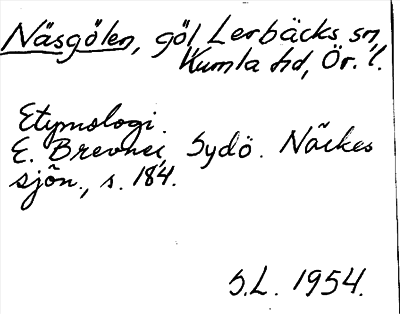 Näsgölen, göl, Lerbäcks sn,
Kumla hd, Ör. l.
Etymologi.
E. Brevner, Sydö. Närkes
sjön., s. 184.
S.L. 1954.